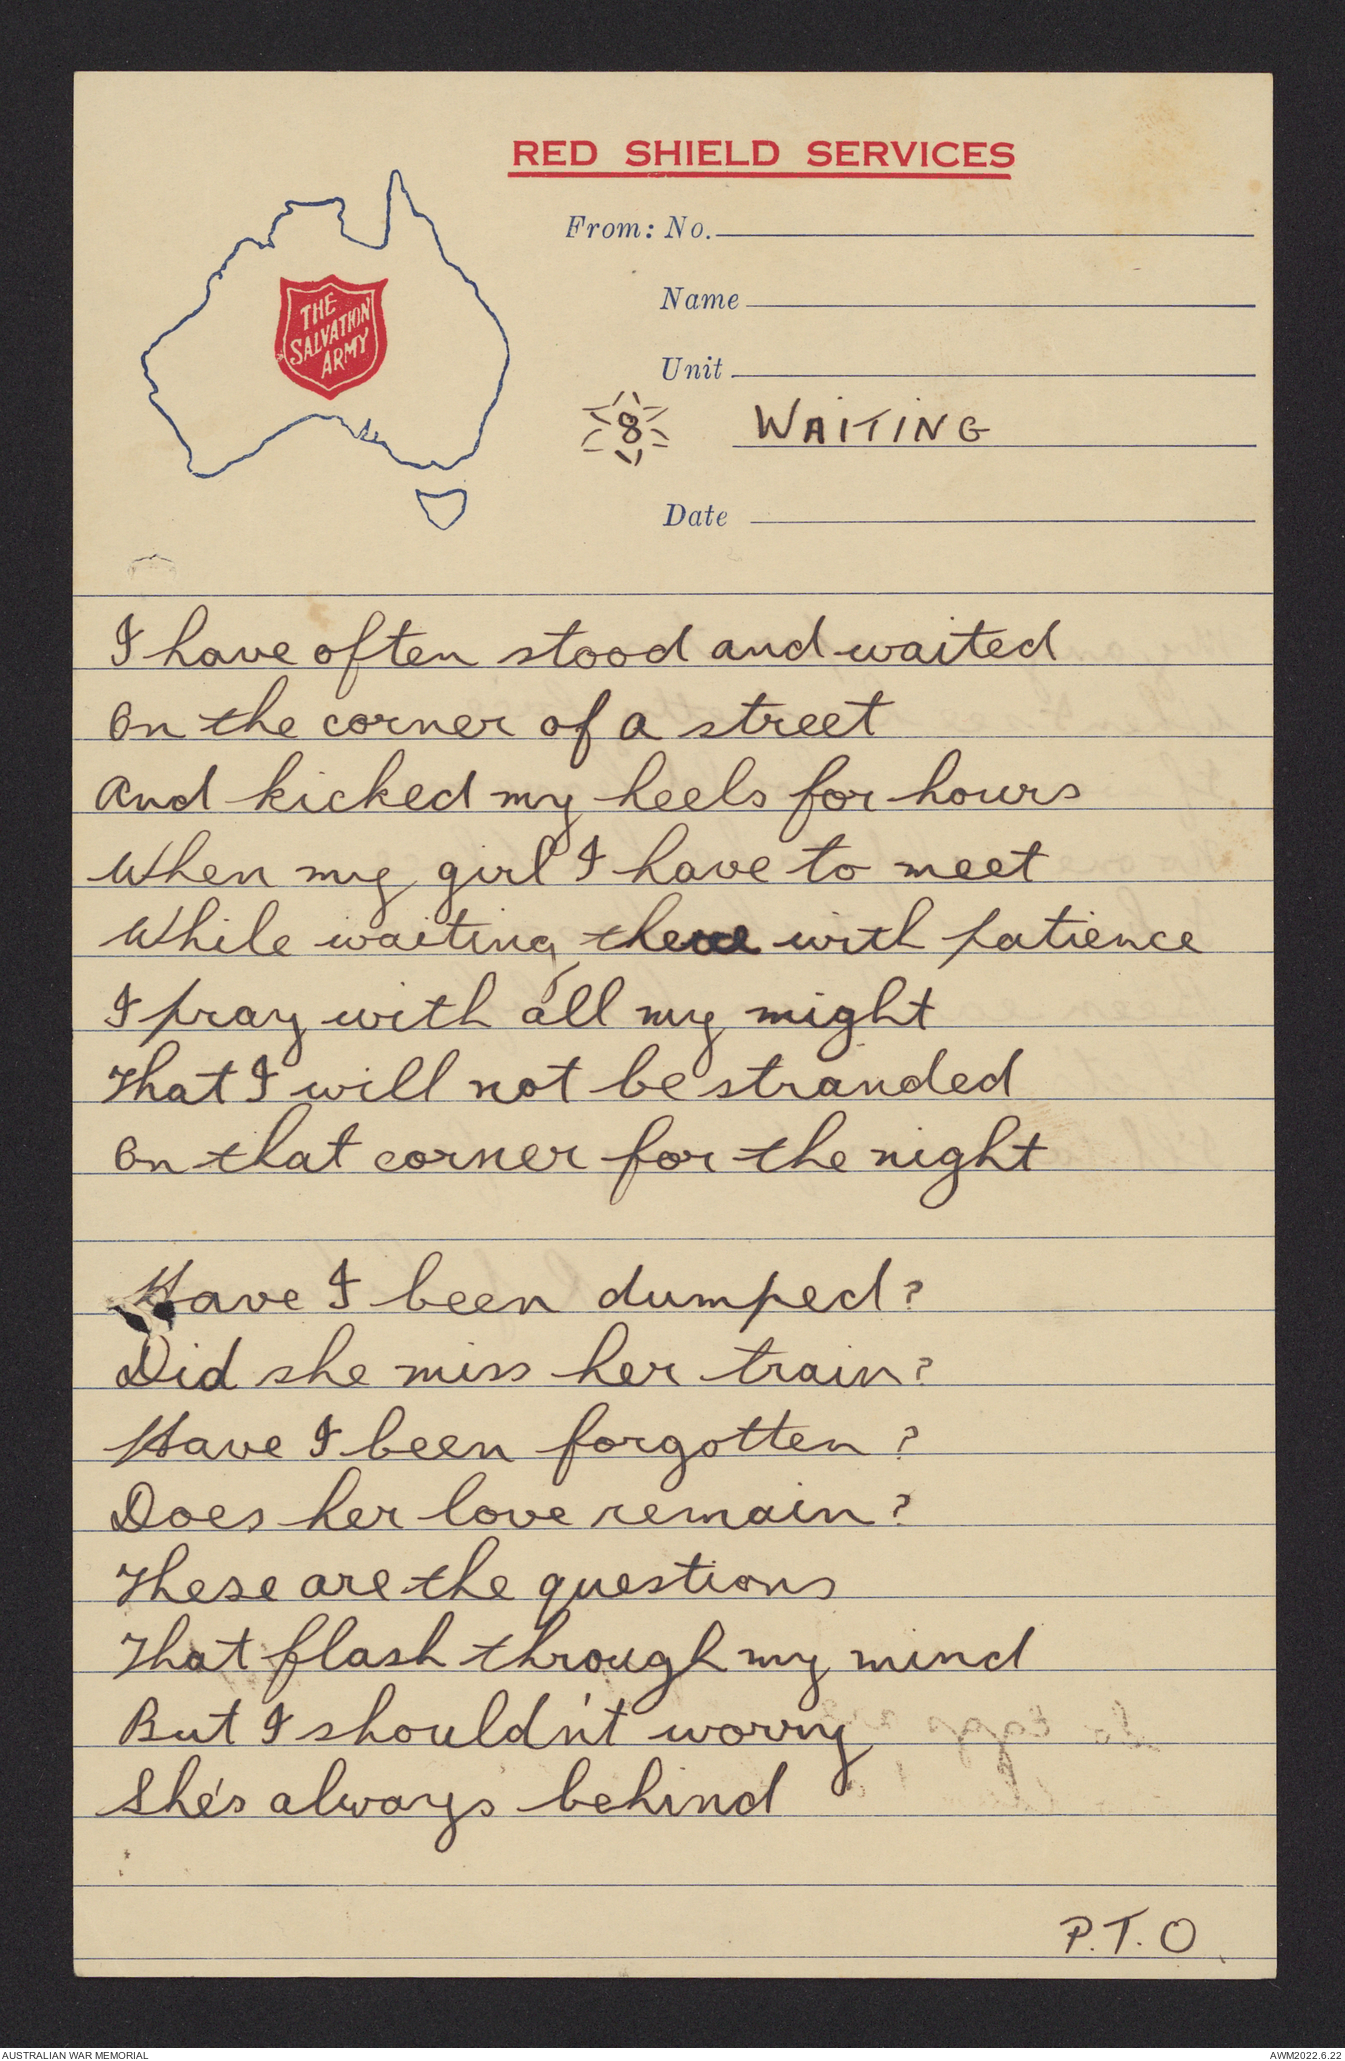 RED SHIELD SERVICES
From: No.
Name
THE
SALVATION
ARMY
Unit
8 WAITING
Date
I have often stood and waited
On the corner of a street
And kicked my heels for hours
When my girl I have to meet
While waiting there with patience
I pray with all my might
That I will not be stranded
On that corner for the night
Have I been dumped?
Did she miss her train?
Have I been forgotten?
Does her love remain?
These are the questions
That flash through my mind
But I shouldn't worry
She's always behind
P.T.O
AUSTRALIAN WAR MEMORIAL
AWM2022.6.22